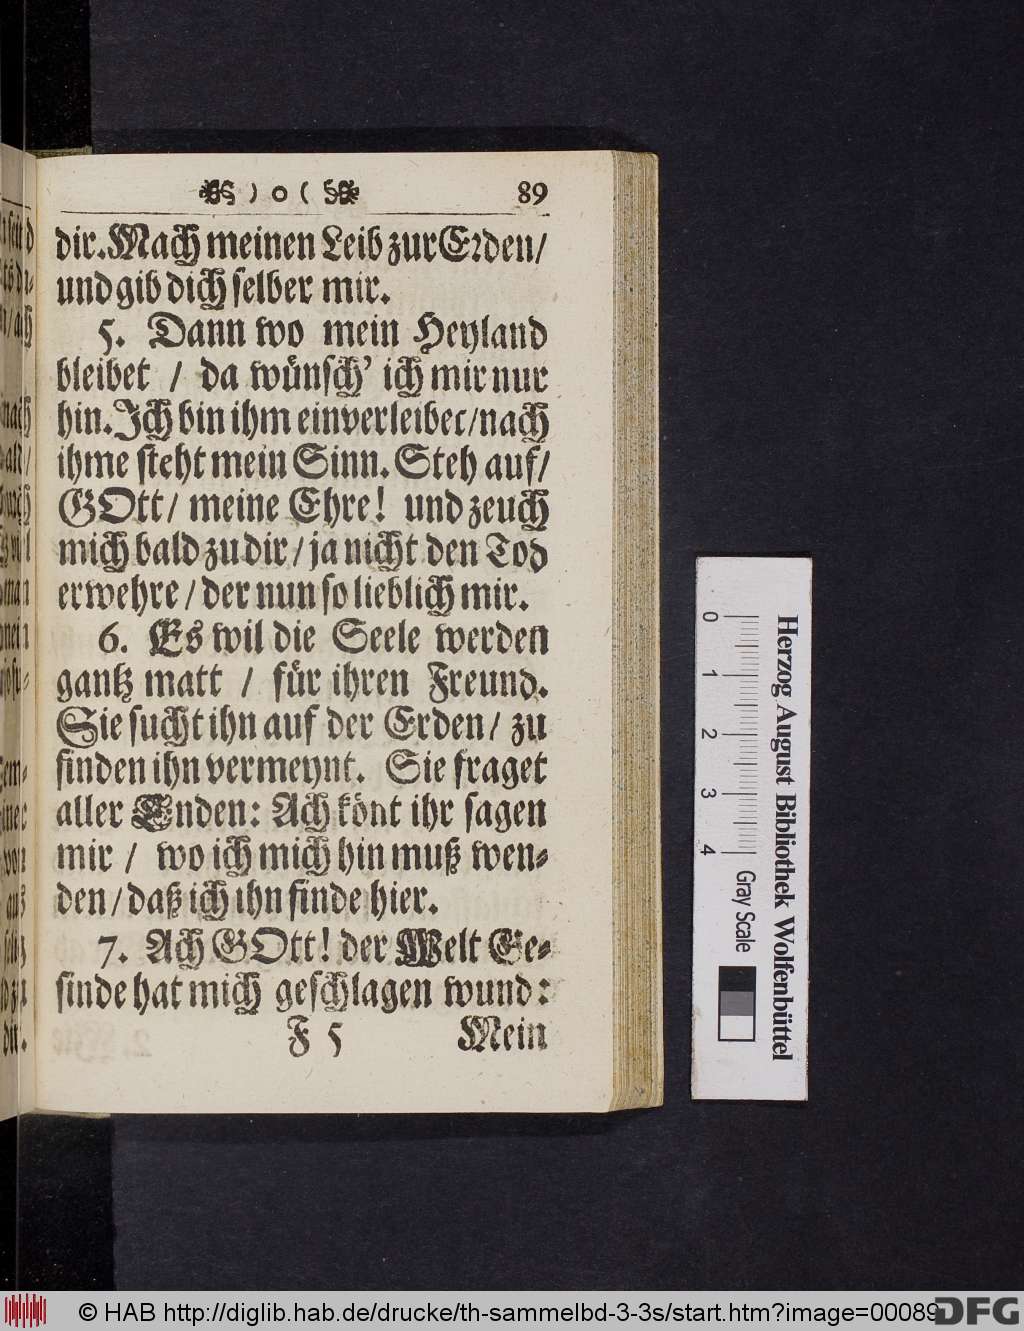 ) o ( 89
dir. Mach meinen Leib zur Erden/
und gib dich selber mir.
5. Dann wo mein Heyland
bleibet / da wünsch' ich mir nur
hin. Ich bin ihm einverleibet/nach
ihme steht mein Sinn. Steh auf/
GOtt/ meine Ehre! und zeuch
mich bald zu dir / ja nicht den Tod
erwehre / der nun so lieblich mir.
6. Es wil die Seele werden
gantz matt / für ihren Freund.
Sie sucht ihn auf der Erden/ zu
finden ihn vermeynt. Sie fraget
aller Enden: Ach könt ihr sagen
mir / wo ich mich hin muß wen-
den / daß ich ihn finde hier.
7. Ach GOtt! der Welt Ge-
sinde hat mich geschlagen wund:
F 5 Mein
Herzog August Bibliothek Wolfenbüttel
0 1 2 3 4 Gray Scale
© HAB http://diglib.hab.de/drucke/th-sammelbd-3-3s/start.htm?image=00089
DFG